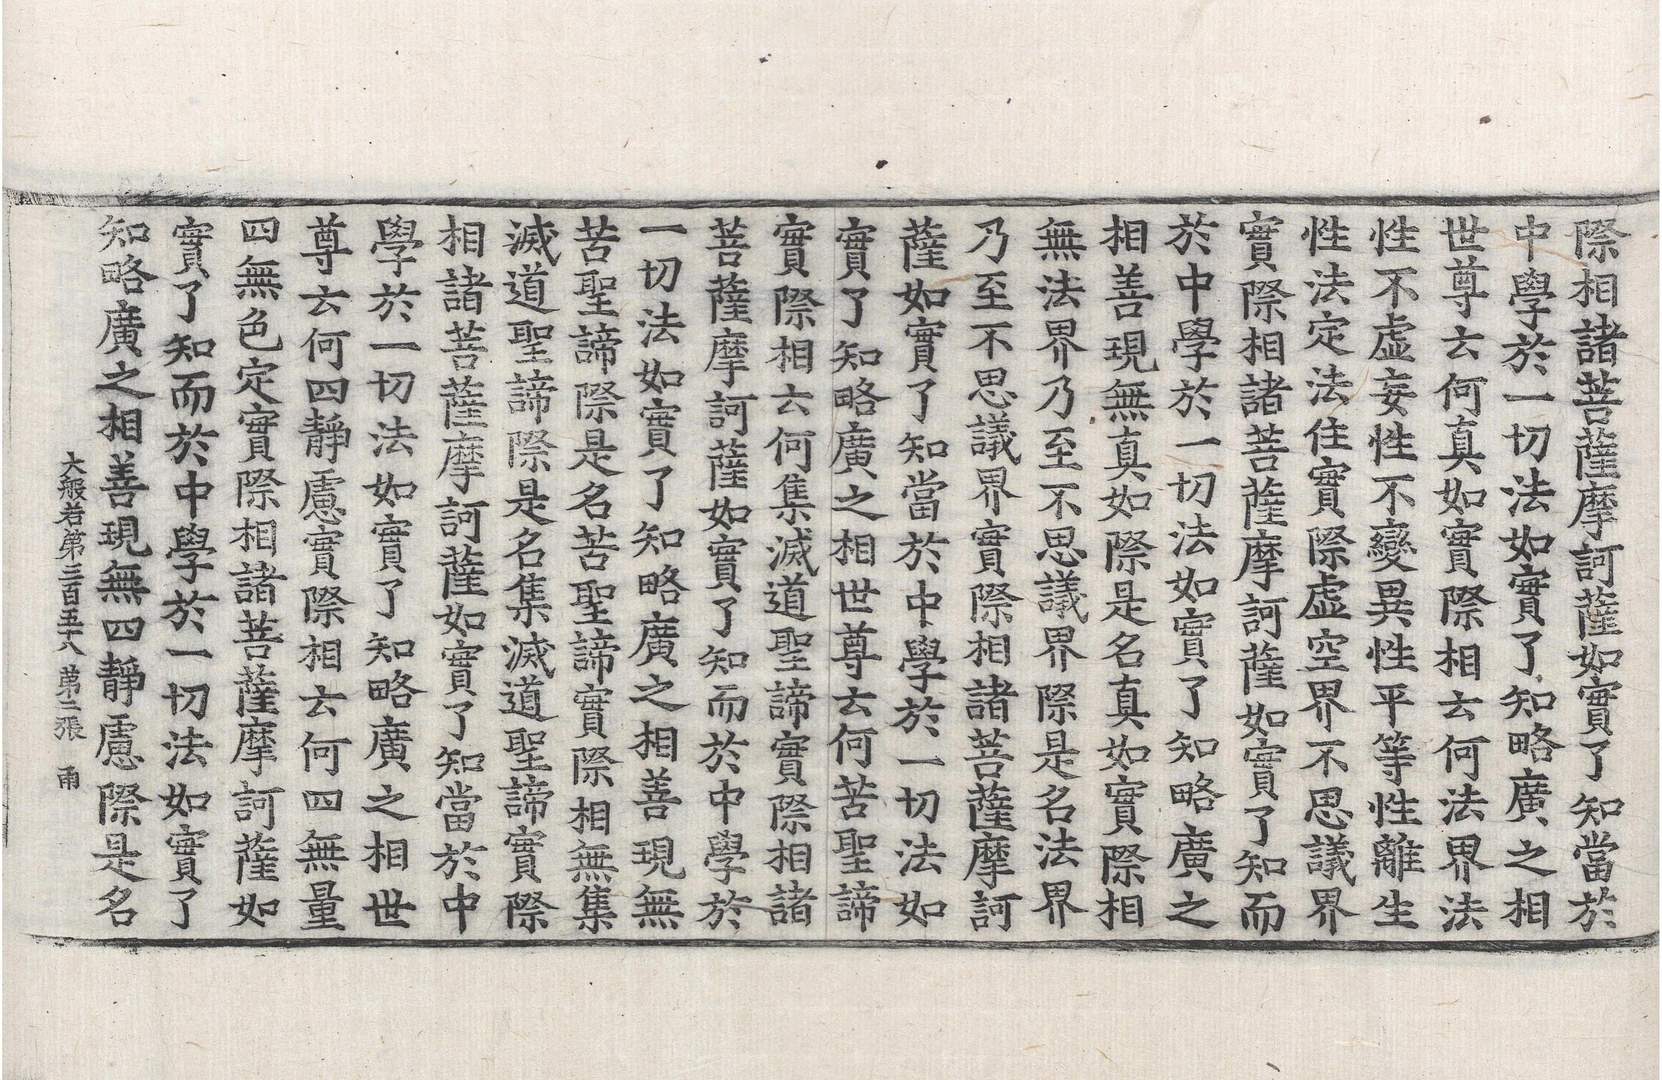 際相諸菩薩摩訶薩如實了知當於
中學於一切法如實了知略廣之相
世尊云何真如實際相云何法界法
性不虛妄性不變異性平等性離生
性法定法住實際虛空界不思議界
實際相諸菩薩摩訶薩如實了知而
於中學於一切法如實了知略廣之
相善現無真如際是名真如實際相
無法界乃至不思議界際是名法界
乃至不思議界實際相諸菩薩摩訶
薩如實了知當於中學於一切法如
實了知略廣之相世尊云何苦聖諦
實際相云何集滅道聖諦實際相諸
菩薩摩訶薩如實了知而於中學於
一切法如實了知略廣之相善現無
苦聖諦際是名苦聖諦實際相無集
滅道聖諦際是名集滅道聖諦實際
相諸菩薩摩訶薩如實了知當於中
學於一切法如實了知略廣之相世
尊云何四靜慮實際相云何四無量
四無色定實際相諸菩薩摩訶薩如
實了知而於中學於一切法如實了
知略廣之相善現無四靜慮際是名
大般若第三百五十八 第二張 雨